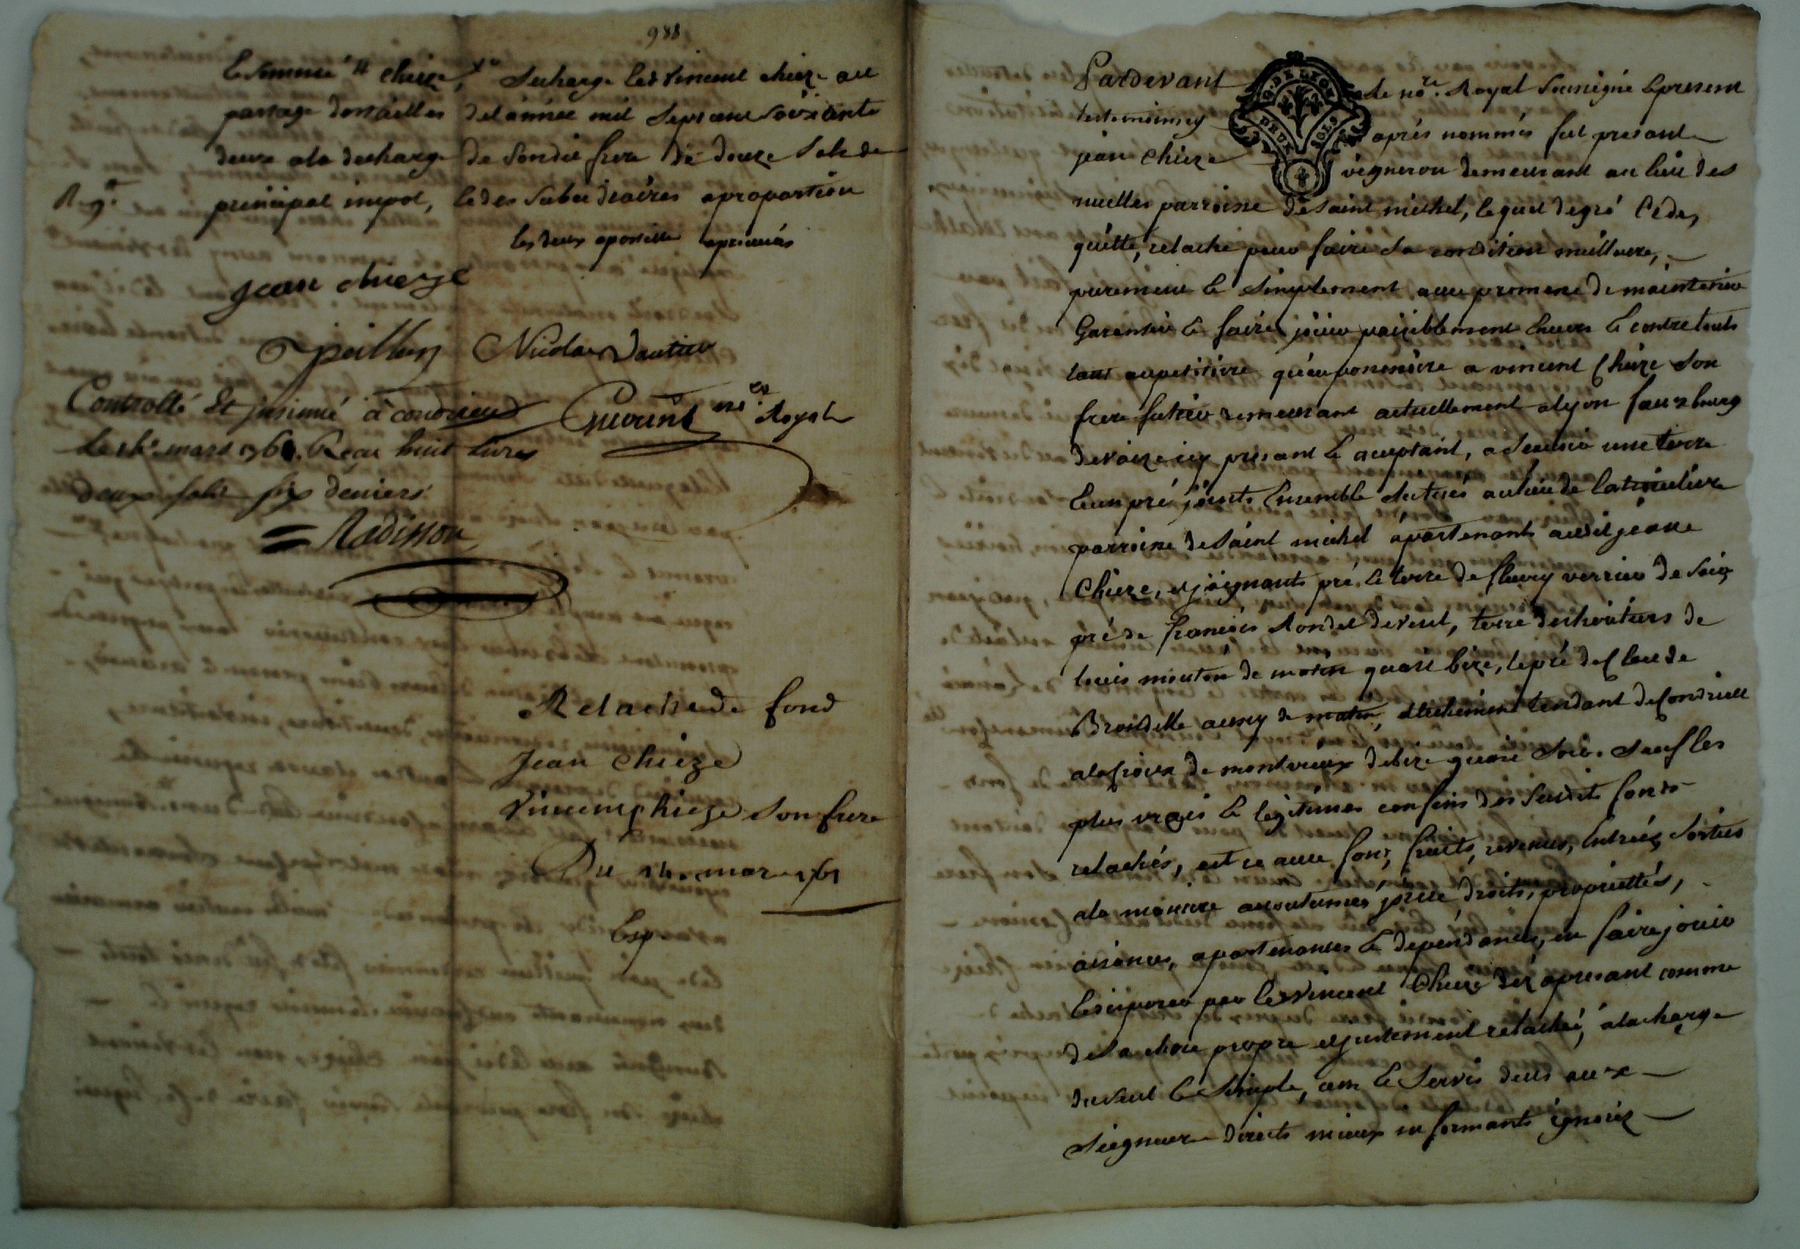 988
& Simmie Chieze, se charge led. Vincent chieze au
partage des tailles de l'année mil sept cent soixante
deux a la decharge de Son dit frere de douze sols de
principal impot, & des Subsidiaires a proportion
les deux apostilles aprouvés
jean chieze
Nicolas Dautier
Guerint no.re Royal
Controllé Et insinué à condrieu
le 14e mars 1761. Reçu huit livres
deux sols six deniers
Radisson
Relache de fond
Jean Chieze
Vincent chieze son frere
Du 14 mars 1761
Exp
G. DE LYON
DEUX SOLS
Pardevant le no.re Royal Soussigné & present
les temoins cy après nommés fut present
jean Chieze vigneron demeurant au lieu des
nuelles parroisse de Saint michel, lequel de gré Cede,
quitte, relache pour faire Sa condition meilleure,
purement & Simplement avec promesse de maintenir
Garentir & faire jouir paisiblement Envers & contre touts
tant au petitoire qu'au possessoire a vincent Chieze Son
frere demeurant actuellement a lyon fauxbourg
de vaize icy present & aceptant, a Scavoir une terre
& un pré joints Ensemble Situés au lieu de
parroisse de Saint michel apartenants audit jean
Chieze, & joignants pré & terre de fleury verrier de Soir
pré de françois Rondet de vent, terre des heritiers de
louis mouton de matin quart bize, le pré de Claude
Broidille aussy de matin, & le chemin tendant de Condrieu
a la croix de montvieux de bize quart Soir. Sauf les
plus vrays & legitimes confins des Susdits fonds
relachés, et ce avec fonds, fruits, revenus, Entrées, Sorties
a la maniere acoutumée, droits, proprietés,
aisances, apartenances & dependances, en faire jouir
& disposer par led. vincent Chieze dez apresent comme
de Sa chose propre & justement relaché, a la charge
du cent & Simple, cens & Servis deus aux
Seigneurs directs mieux informants ignorés